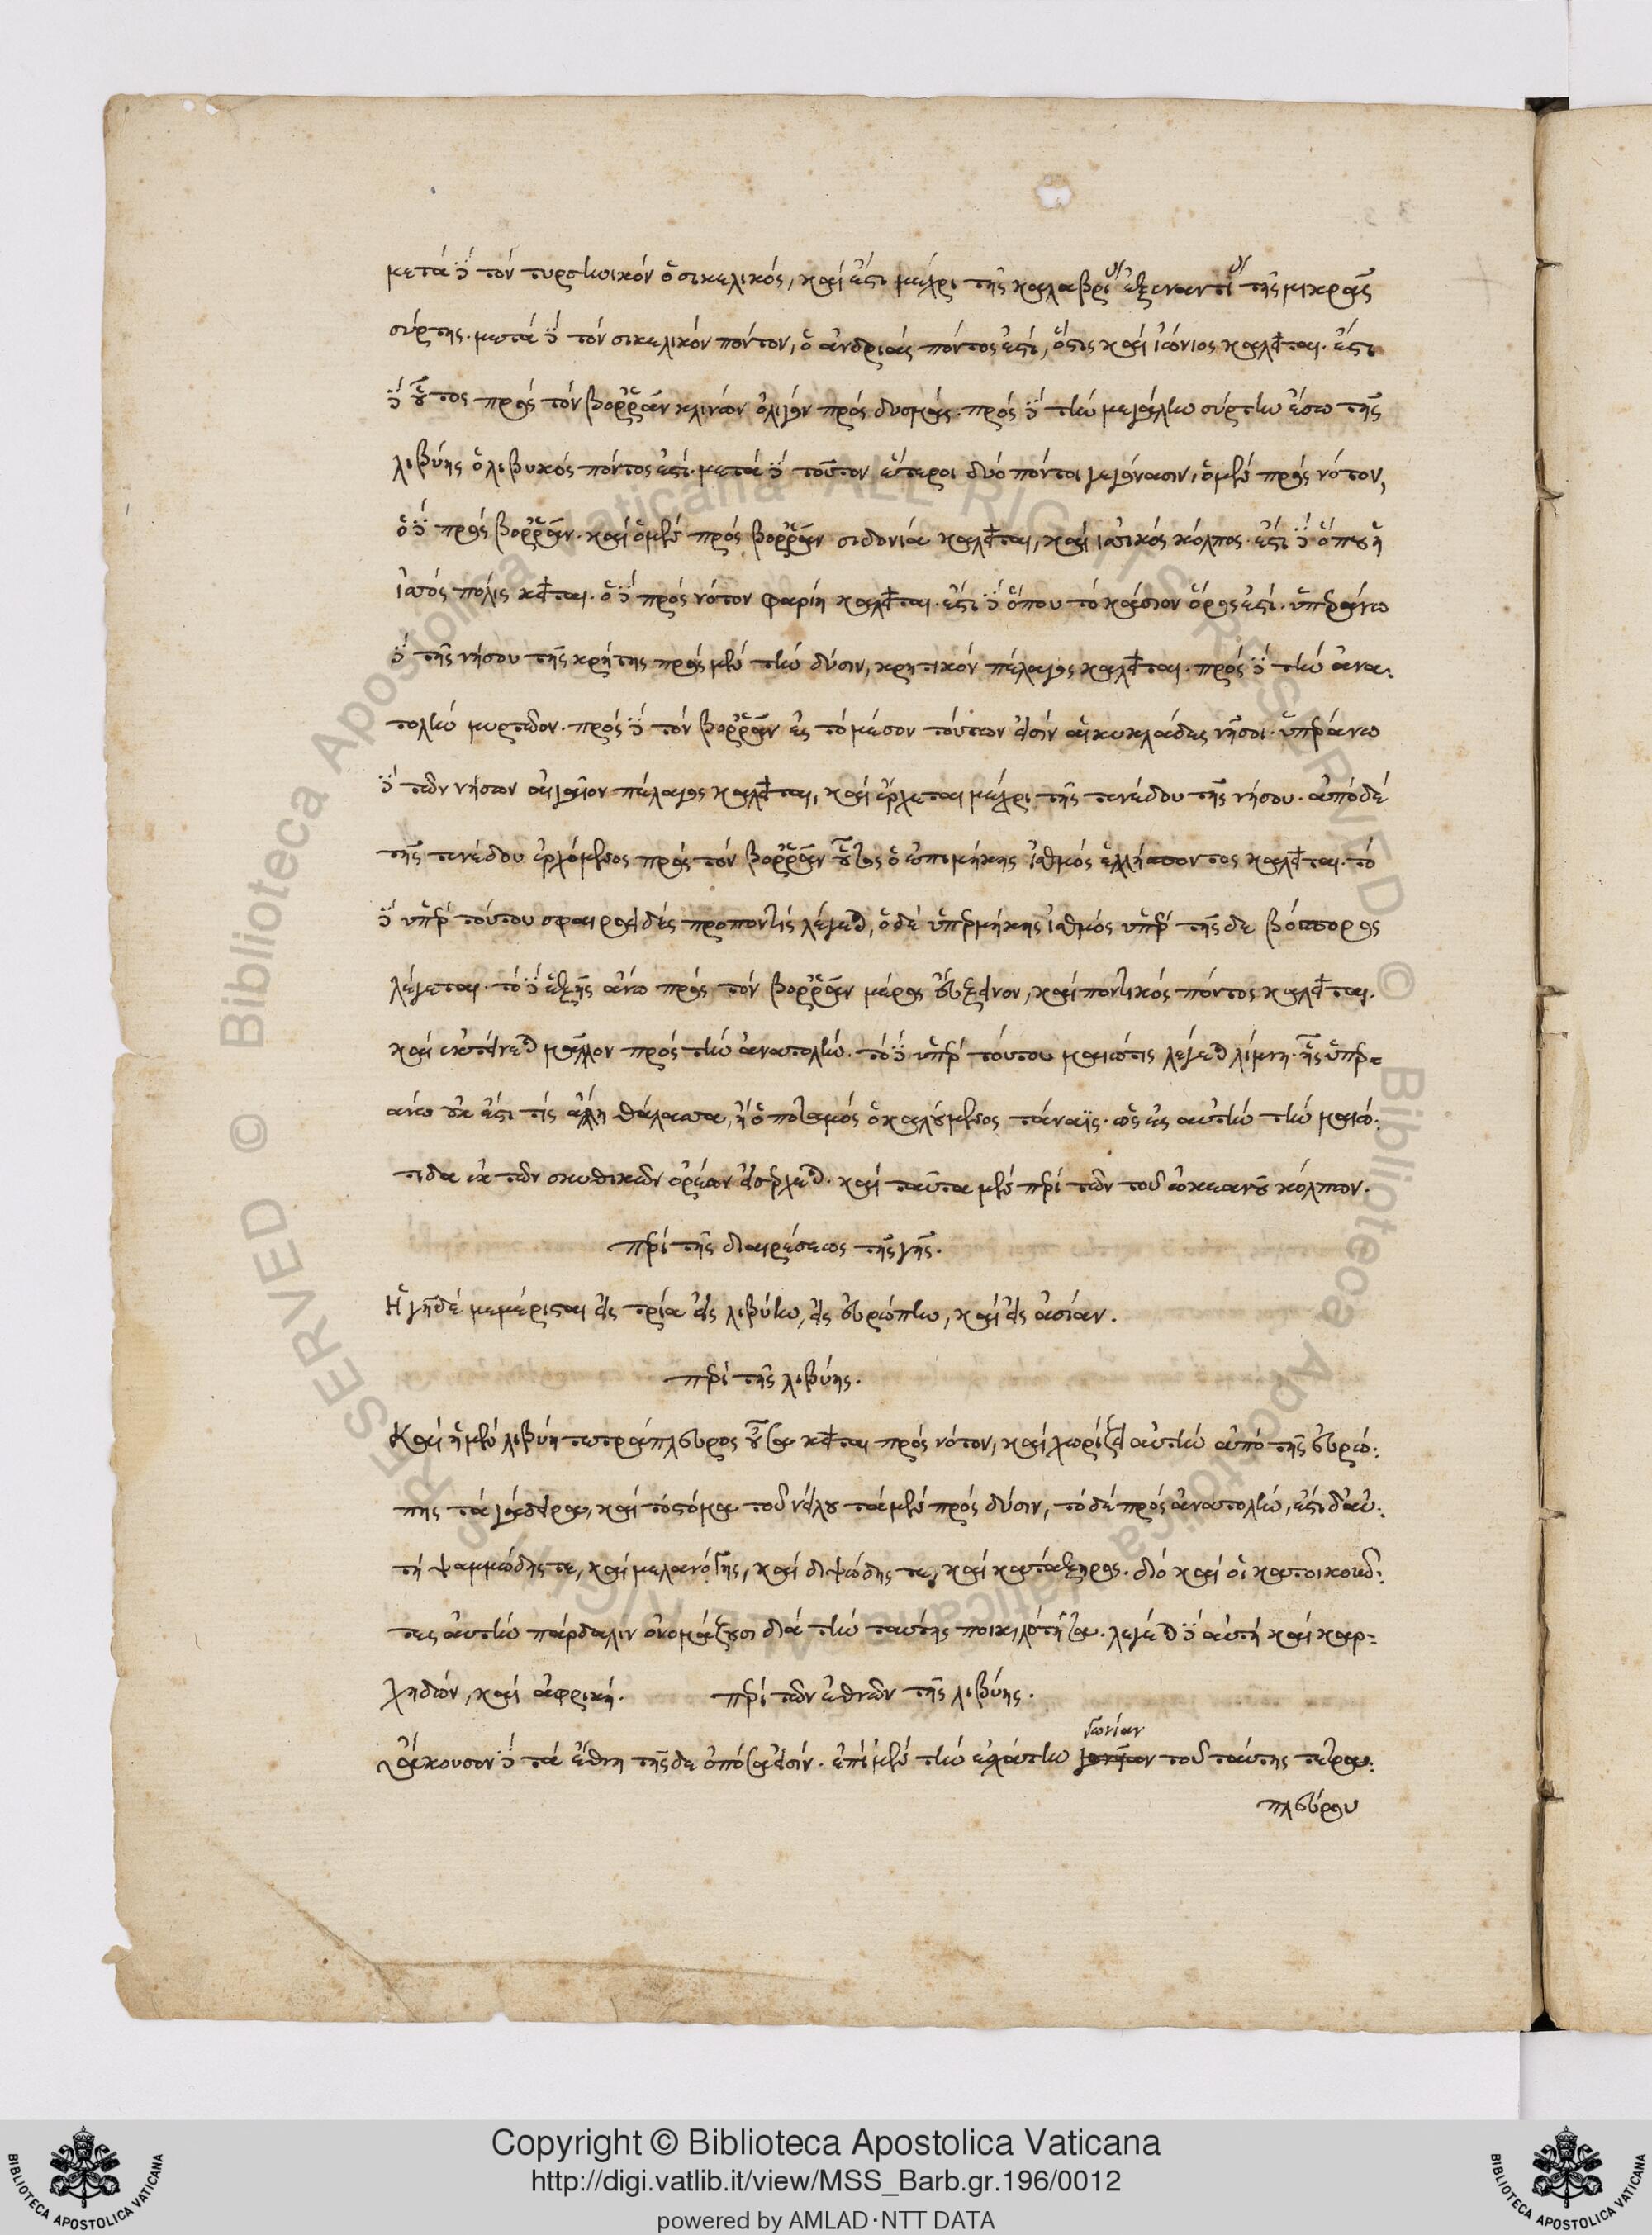 μετὰ δὲ τὸν τυρσηνικὸν ὁ σικελικός, καὶ ἔστι μέχρι τῆς καλαβρίας ἐξεναντίας τῆς μικρᾶς
σύρτης. μετὰ δὲ τὸν σικελικὸν πόντον, ὁ ἀνδριὰς πόντος ἐστί, ὅστις καὶ ἰώνιος καλεῖται. ἔστι
δὲ οὗτος πρὸς τὸν βορρᾶν κλίνων ὀλίγον πρὸς δυσμάς. πρὸς δὲ τὴν μεγάλην σύρτην ἔσω τῆς
λιβύης ὁ λιβυκὸς πόντος ἐστί. μετὰ δὲ τοῦτον ἕτεροι δυὸ πόντοι γεγόνασιν, ὁ μὲν πρὸς νότον,
ὁ δὲ πρὸς βορρᾶν. καὶ ὁ μὲν πρὸς βορρᾶν σιδονία καλεῖται, καὶ ἰσικὸς κόλπος. ἔστι δὲ ὅπου ἡ
ἰσὸς πόλις κεῖται. ὁ δὲ πρὸς νότον φαρίη καλεῖται. ἔστι δὲ ὅπου τὸ κάσιον ὄρος ἐστί. ὑπεράνω
δὲ τῆς νήσου τῆς κρήτης πρὸς μὲν τὴν δύσιν, κρητικὸν πέλαγος καλεῖται. πρὸς δὲ τὴν ἀνα-
τολὴν μυρτῶον. πρὸς δὲ τὸν βορρᾶν εἰς τὸ μέσον τούτων εἰσὶν αἱ κυκλάδες νῆσοι. ὑπεράνω
δὲ τῶν νήσων αἰγαῖον πέλαγος καλεῖται, καὶ ἔρχεται μέχρι τῆς τενέδου τῆς νήσου. ἀπὸ δὲ
τῆς τενέδου ἐρχόμενος πρὸς τὸν βορρᾶν οὗτος ὁ ἐπιμήκης ἰσθμὸς ἑλλήσποντος καλεῖται. τὸ
δὲ ὑπὲρ τούτου σφαιροειδὲς προποντὶς λέγεται, ὁ δὲ ὑπερμήκης ἰσθμὸς ὑπὲρ τῆς δε βόσπορος
λέγεται. τὸ δὲ ἑξῆς ἄνω πρὸς τὸν βορρᾶν μέρος εὔξεινον, καὶ ποντικὸς πόντος καλεῖται.
καὶ ἐκτείνεται μᾶλλον πρὸς τὴν ἀνατολήν. τὸ δὲ ὑπὲρ τούτου μαιώτις λέγεται λίμνη. ἧς ὑπερ-
άνω οὐκ ἔστι τίς ἄλλη θάλασσα, ἢ ὁ ποταμὸς ὁ καλούμενος τάναϊς. ὃς εἰς αὐτὴν τὴν μαιώ-
τιδα ἐκ τῶν σκυθικῶν ὀρέων εἰσέρχεται. καὶ ταῦτα μὲν περὶ τῶν τοῦ ὠκεανοῦ κόλπων.
περὶ τῆς διαιρέσεως τῆς γῆς.
Ἡ γῆ δὲ μεμέρισται εἰς τρία εἰς λιβύην, εἰς εὐρώπην, καὶ εἰς ἀσίαν.
περὶ τῆς λιβύης.
Καὶ ἡ μὲν λιβύη τετράπλευρος οὖσα κεῖται πρὸς νότον, καὶ χωρίζει αὐτὴν ἀπὸ τῆς εὐρώ-
πης τὰ γάδειρα, καὶ τὸ στόμα τοῦ νείλου τὰ μὲν πρὸς δύσιν, τὸ δὲ πρὸς ἀνατολήν, ἔστι δ' αὐ-
τὴ ψαμμώδης τε, καὶ μελανόγης, καὶ διψώδης τε, καὶ κατάξηρος. διὸ καὶ οἱ κατοικοῦν-
τες αὐτὴν πάρδαλιν ὀνομάζουσι διὰ τὴν ταύτης ποικιλότητα. λέγεται δὲ αὐτὴ καὶ καρ-
χηδών, καὶ ἀφρική. περὶ τῶν ἐθνῶν τῆς λιβύης.
ἄκουσον δὲ τὰ ἔθνη τῆς δε ὁπόσα εἰσίν. ἐπὶ μὲν τὴν ἐσχάτην γωνίαν τοῦ ταύτης τετρα-
πλεύρου